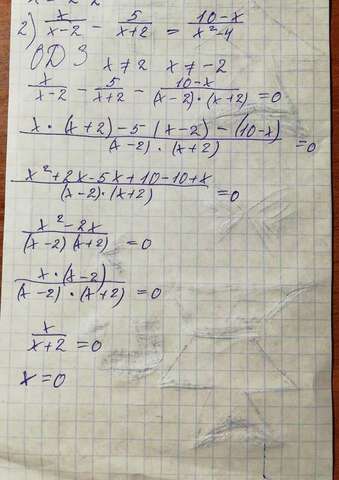 2) x/(x-2) - 5/(x+2) = (10-x)/(x²-4)
ODЗ x≠2 x≠-2
x/(x-2) - 5/(x+2) - (10-x)/((x-2)·(x+2)) = 0
(x·(x+2)-5(x-2)-(10-x))/((x-2)·(x+2)) = 0
(x²+2x-5x+10-10+x)/((x-2)·(x+2)) = 0
(x²-2x)/((x-2)(x+2)) = 0
(x·(x-2))/((x-2)·(x+2)) = 0
x/(x+2) = 0
x=0